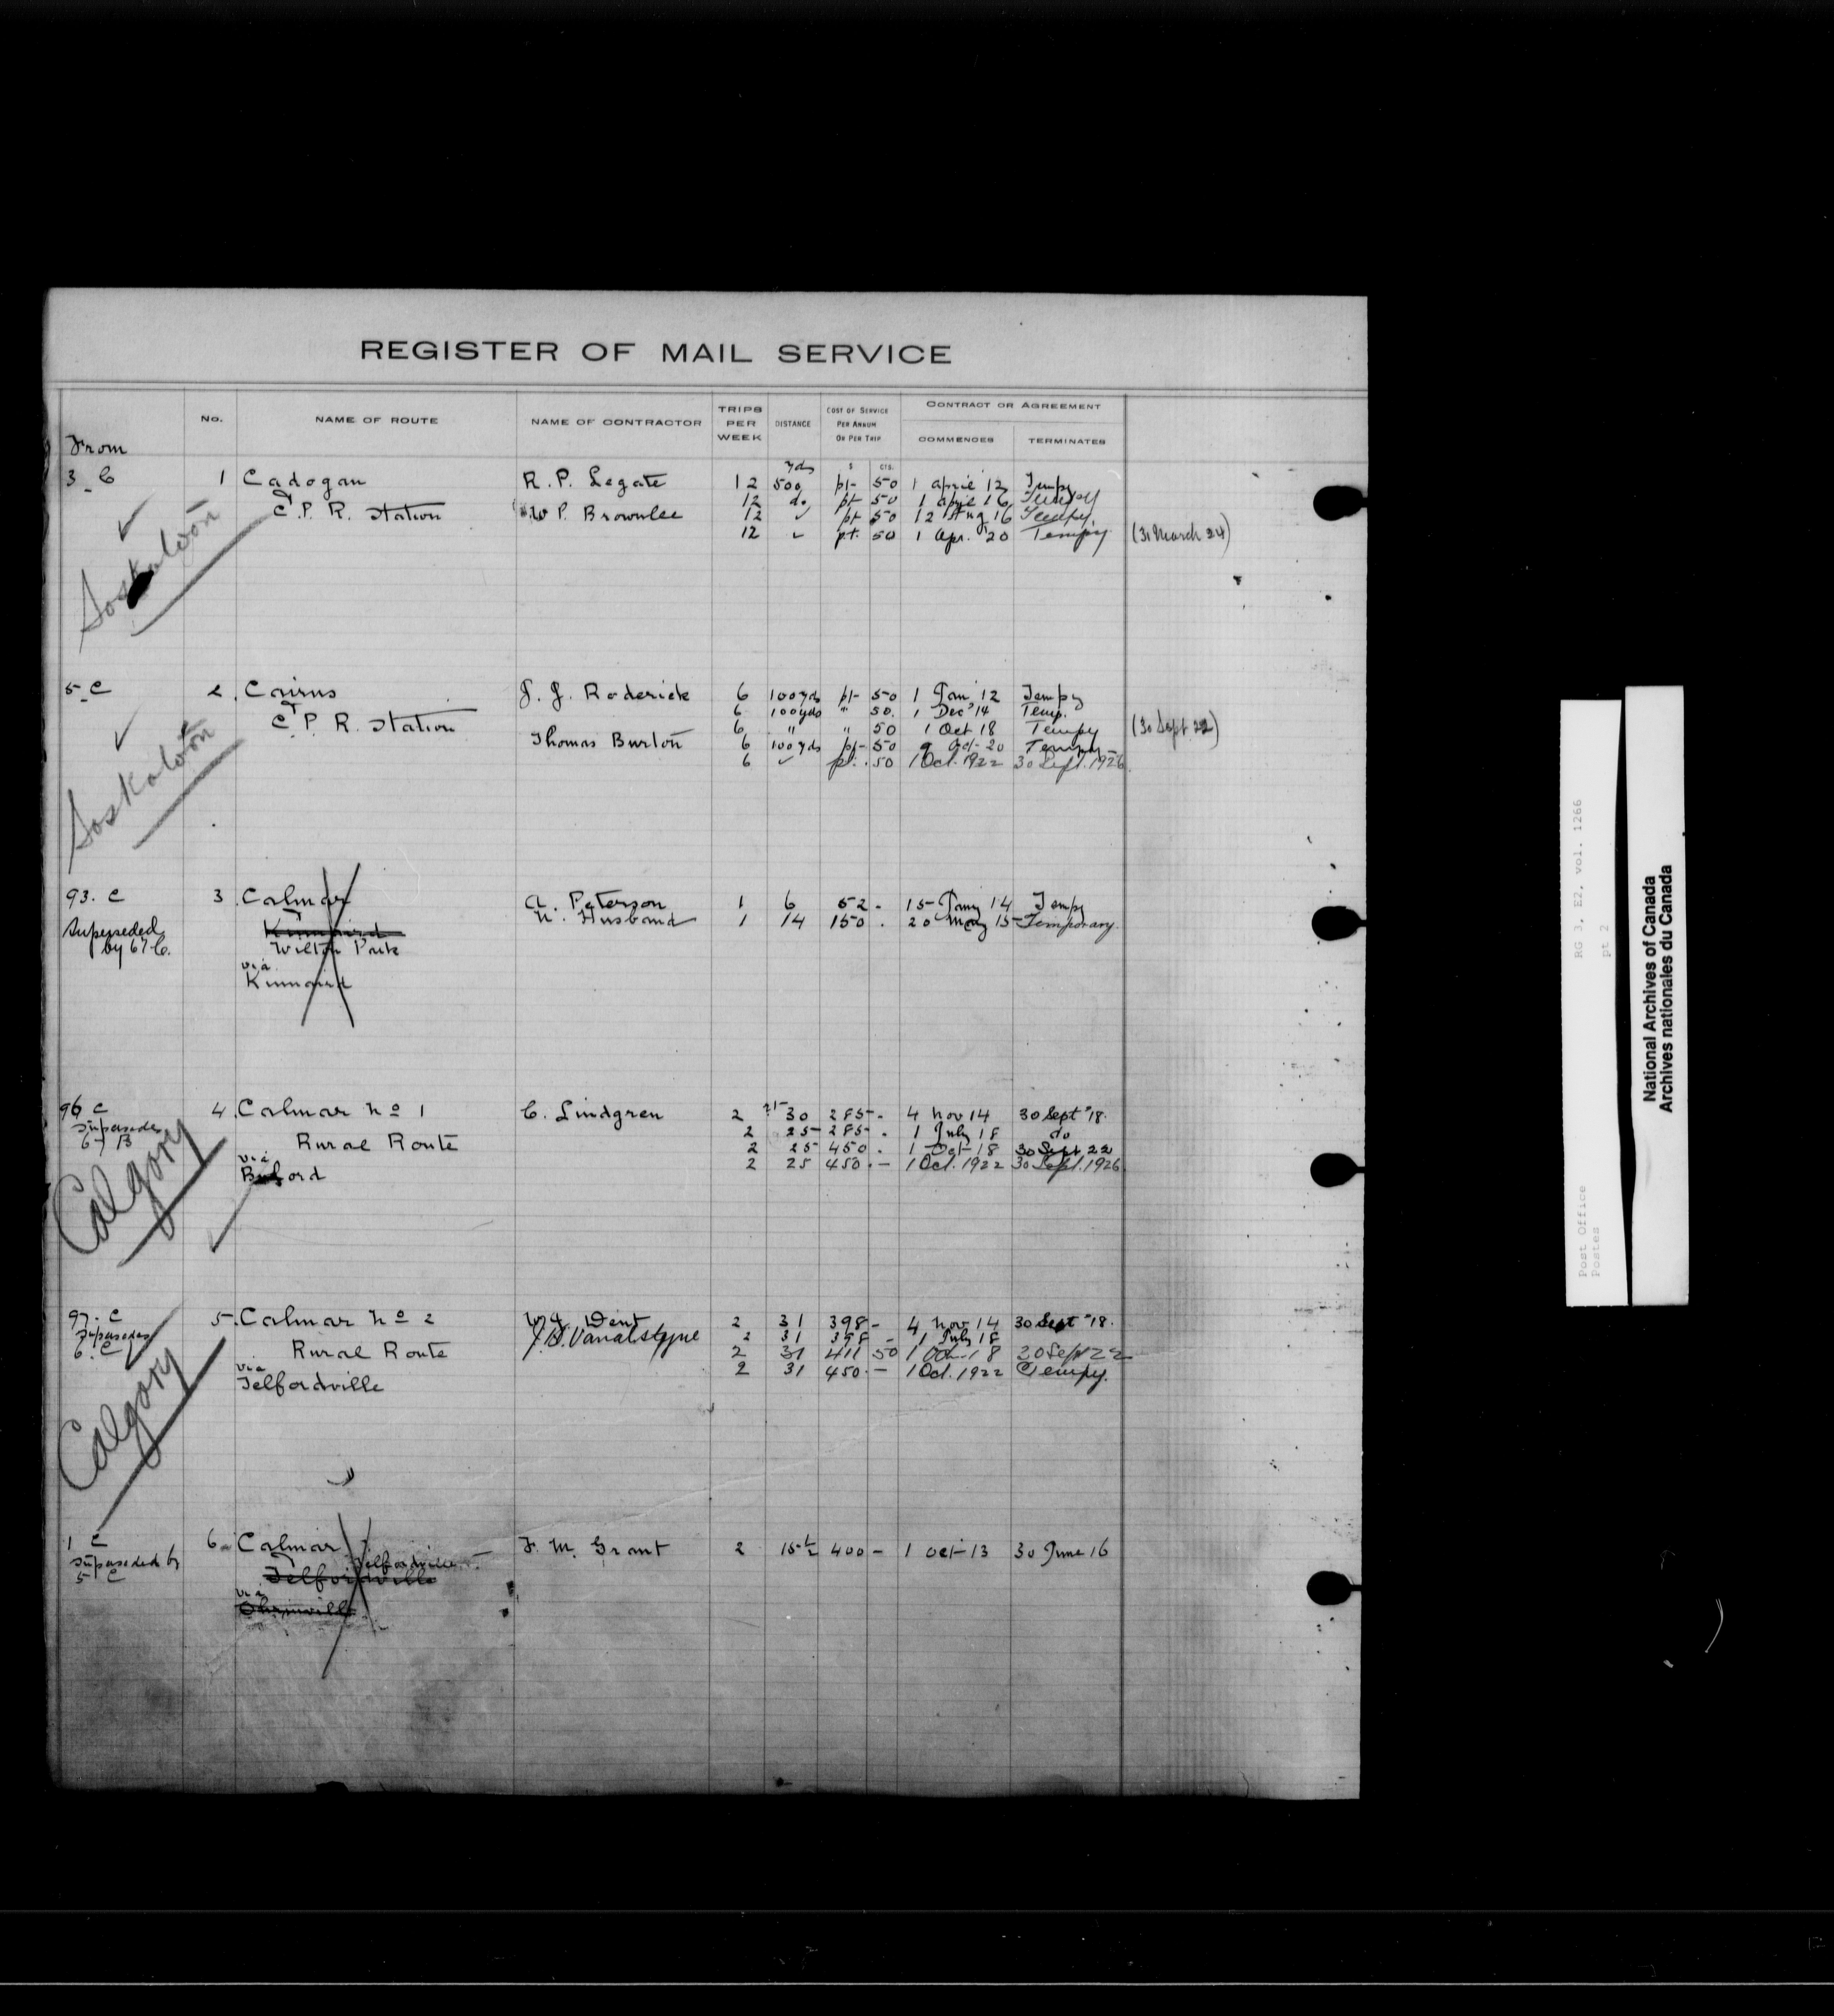 REGISTER OF MAIL SERVICE
From No. NAME OF ROUTE NAME OF CONTRACTOR TRIPS PER WEEK DISTANCE COST OF SERVICE PER ANNUM OR PER TRIP CONTRACT OR AGREEMENT COMMENCES TERMINATES
yds $ CTS.
3_C 1 Cadogan R. P. Legate 12 500 pt 50 1 April 12 Tempy
12 do pt 50 1 April 16 Tempy
C. P. R. Station W P. Brownlee 12 ✓ pt 50 12 Aug 16 Tempy.
12 ✓ pt. 50 1 Apr. '20 Tempy (31 March 24)
Saskatoon
5_C 2. Cairns J. J. Roderick 6 100 yds pt 50 1 Jan '12 Tempy
6 100 yds " 50. 1 Dec '14 Temp.
C. P. R. Station 6 " " 50 1 Oct 18 Tempy (30 Sept. 22)
Thomas Burton 6 100 yds pt 50 9 Oct 20 Tempy
6 ✓ pt. . 50 1 Oct. 1922 30 Sept. 1926
Saskatoon
93. C 3. Calmar A. Peterson 1 6 52 - 15 Jany 14 Tempy
Superseded by 67 C. Kinnaird N. Husband 1 14 150 . 20 May 15 Temporary.
Wilton Park
via
Kinnaird
96 C 4. Calmar No 1 C. Lindgren 2 30 285 - 4 Nov 14 30 Sept '18.
Supersedes 67 B 2 25 285 - . 1 July 18 do
Rural Route 2 25 450 . 1 Oct 18 30 Sept 22
via 2 25 450 . — 1 Oct. 1922 30 Sept. 1926
Buford
Calgary
97. C 5. Calmar No 2 W. J. Dent 2 31 398 - 4 Nov 14 30 Sept '18.
Supersedes 6. C J. B. Vanalstyne 2 31 398 - 1 July 18
Rural Route 2 31 411 50 1 Oct. 18 30 Sept 22
via 2 31 450. — 1 Oct. 1922 Tempy.
Telfordville
Calgary
1 C 6. Calmar F. M. Grant 2 15½ 400 - 1 Oct 13 30 June 16
Superseded by 5 C Telfordville
Telfordville
via
National Archives of Canada
Archives nationales du Canada
RG 3, E2, vol. 1266
pt 2
Post Office
Postes